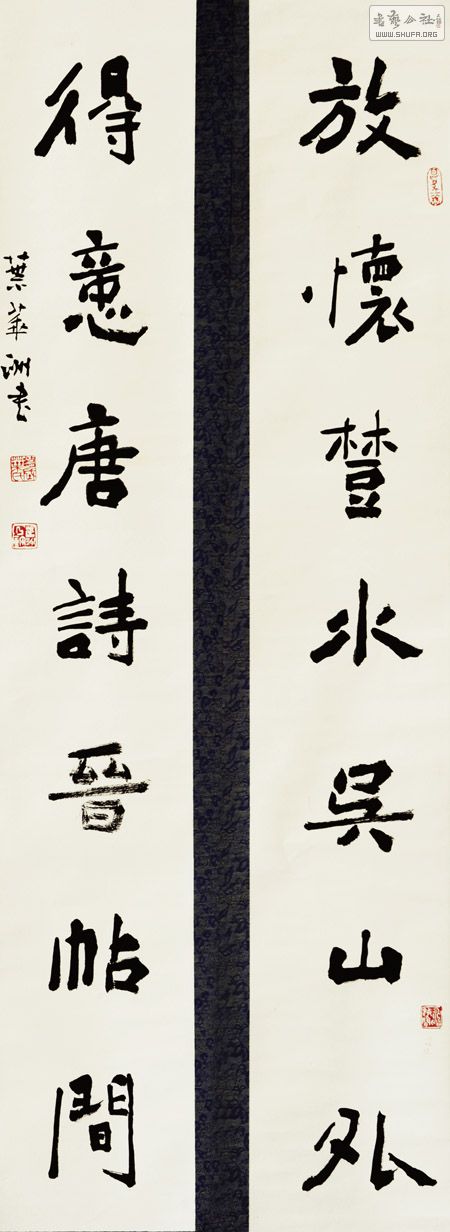 書藝公社
WWW.SHUFA.ORG
放懷楚水吳山外
得意唐詩晉帖間
葉華洲書